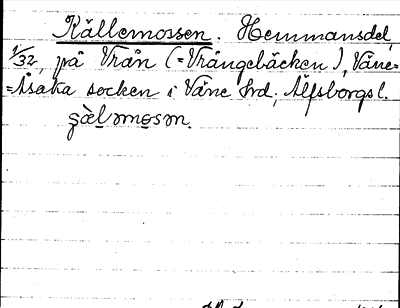 Källemossen. Hemmansdel,
1/32, på Vrån (=Vrångebäcken), Väne-
=Åsaka socken i Väne hrd, Älfsborgs l.